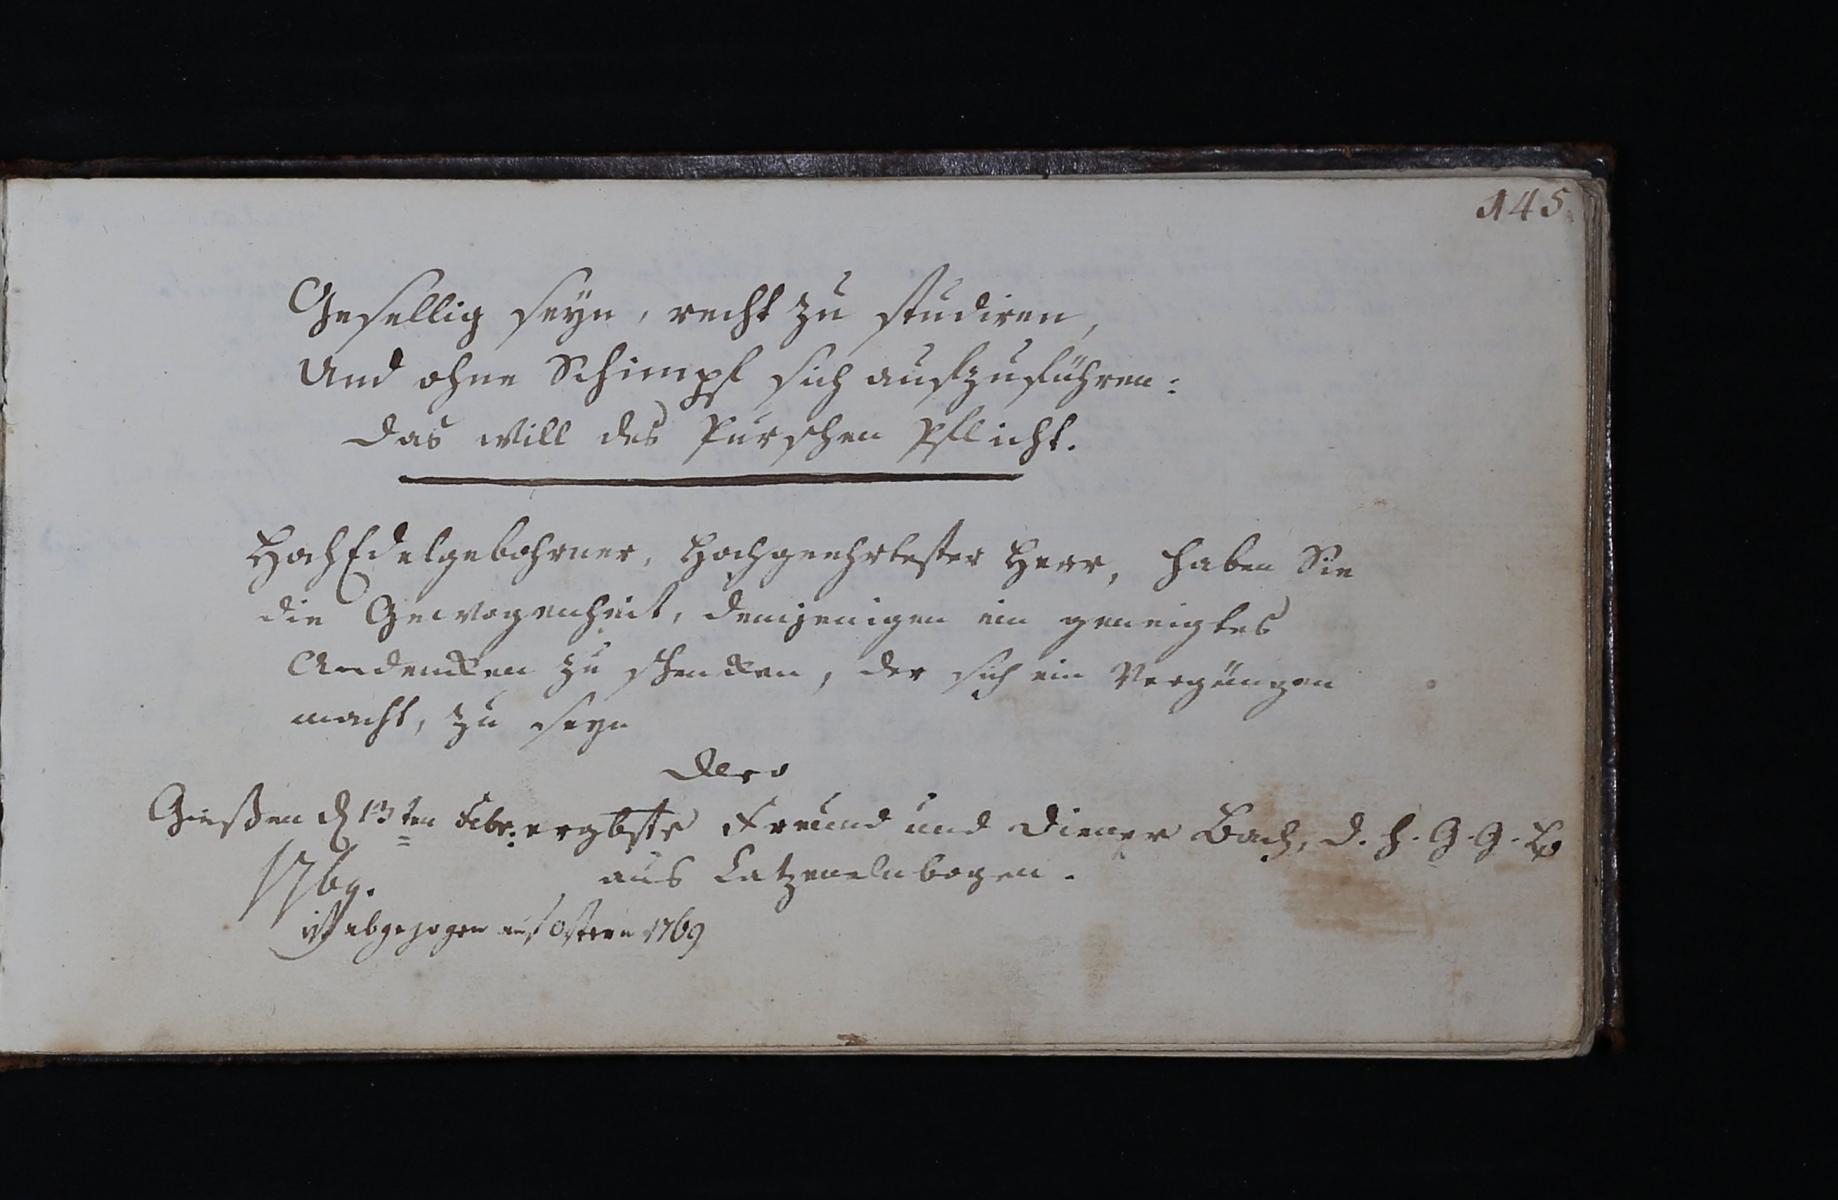 145.
Gesellig seyn, recht zu studiren,
Und ohne Schimpf sich aufzuführen:
Das will des Purschen Pflicht.
HochEdelgebohrner, Hochgeehrtester Herr, haben Sie
die Gewogenheit, demjenigen ein geneigtes
Andencken zu schencken, der sich ein Vergnügen
macht, zu seyn
Dero
Gießen d 13ten Febr. ergbste Freund und Diener Bach, d. h. G. G. B
1769. aus Catzenelnbogen.
ist abgezogen auf Ostern 1769